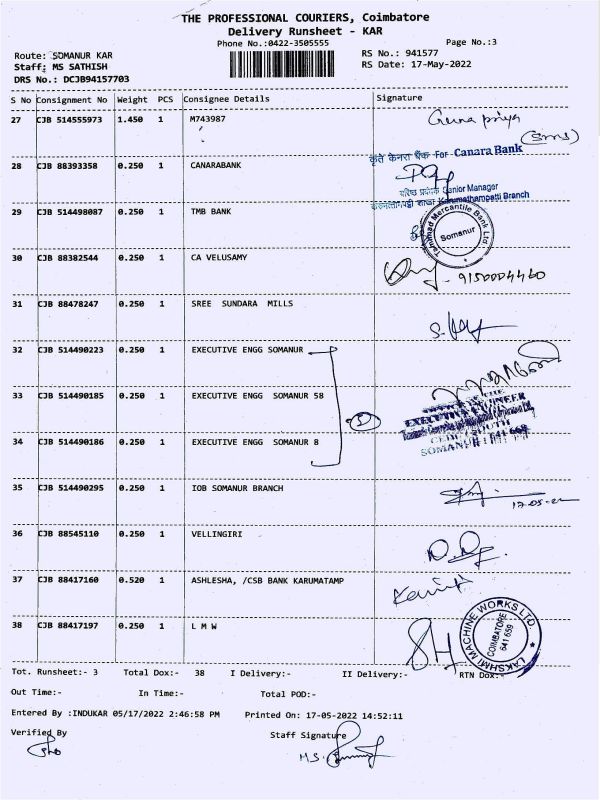 THE PROFESSIONAL COURIERS, Coimbatore
Delivery Runsheet - KAR
Phone No.:0422-3505555
Page No.:3
Route: SOMANUR KAR
RS No.: 941577
Staff: MS SATHISH
RS Date: 17-May-2022
DRS No.: DCJB94157703
S No Consignment No Weight PCS Consignee Details Signature
27 CJB 514555973 1.450 1 M743987
28 CJB 88393358 0.250 1 CANARABANK
कृते केनरा बैंक For Canara Bank
Senior Manager
Karumathampatti Branch
29 CJB 514498087 0.250 1 TMB BANK
Tamilnad Mercantile Bank Ltd.
Somanur
30 CJB 88382544 0.250 1 CA VELUSAMY
- 9150004460
31 CJB 88478247 0.250 1 SREE SUNDARA MILLS
32 CJB 514490223 0.250 1 EXECUTIVE ENGG SOMANUR
33 CJB 514490185 0.250 1 EXECUTIVE ENGG SOMANUR 58
34 CJB 514490186 0.250 1 EXECUTIVE ENGG SOMANUR 8
35 CJB 514490295 0.250 1 IOB SOMANUR BRANCH
17-05-22
36 CJB 88545110 0.250 1 VELLINGIRI
37 CJB 88417160 0.520 1 ASHLESHA, /CSB BANK KARUMATAMP
38 CJB 88417197 0.250 1 L M W
LAKSHMI MACHINE WORKS LTD.
COIMBATORE
641 659
Tot. Runsheet:- 3 Total Dox:- 38 I Delivery:- II Delivery:- RTN Dox:-
Out Time:- In Time:- Total POD:-
Entered By :INDUKAR 05/17/2022 2:46:58 PM Printed On: 17-05-2022 14:52:11
Verified By Staff Signature